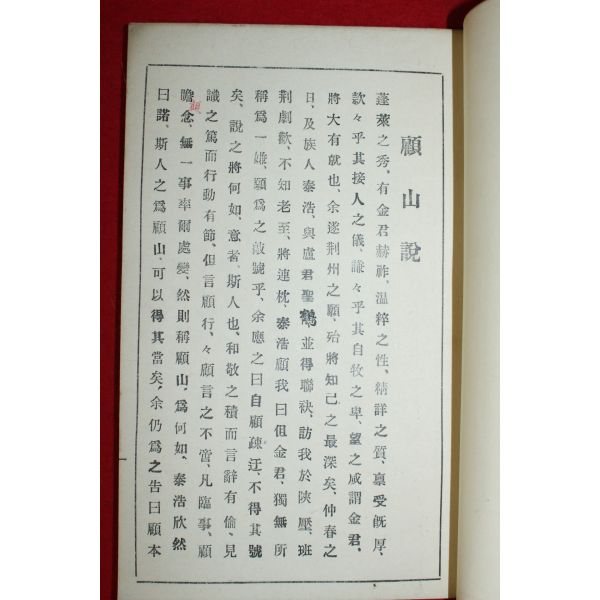 顧山說
蓬萊之秀、有金君赫祚、溫粹之性、精詳之質、稟受旣厚、
款々乎其接人之儀、謙々乎其自牧之卑、望之咸謂金君、
將大有就也、余遂荆州之願、殆將知己之最深矣、仲春之
日、及族人泰浩、與盧君聖鶴、並得聯袂、訪我於陜壓、班
荆劇歡、不知老至、將連枕、泰浩顧我曰但金君、獨無所
稱爲一嫌、願爲之敲號乎、余應之曰自顧疎迂、不得其號
矣、說之將何如、意者、斯人也、和敬之積而言辭有倫、見
識之篤而行動有節、但言顧行、々顧言之不啻、凡臨事、顧
瞻念、無一事率爾處變、然則稱顧山、爲何如、泰浩欣然
曰諾、斯人之爲顧山、可以得其當矣、余仍爲之告曰顧本